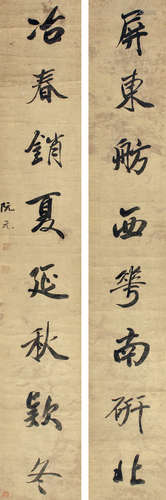 屏東舫西琴南研北
冶春銷夏延秋款冬
阮元